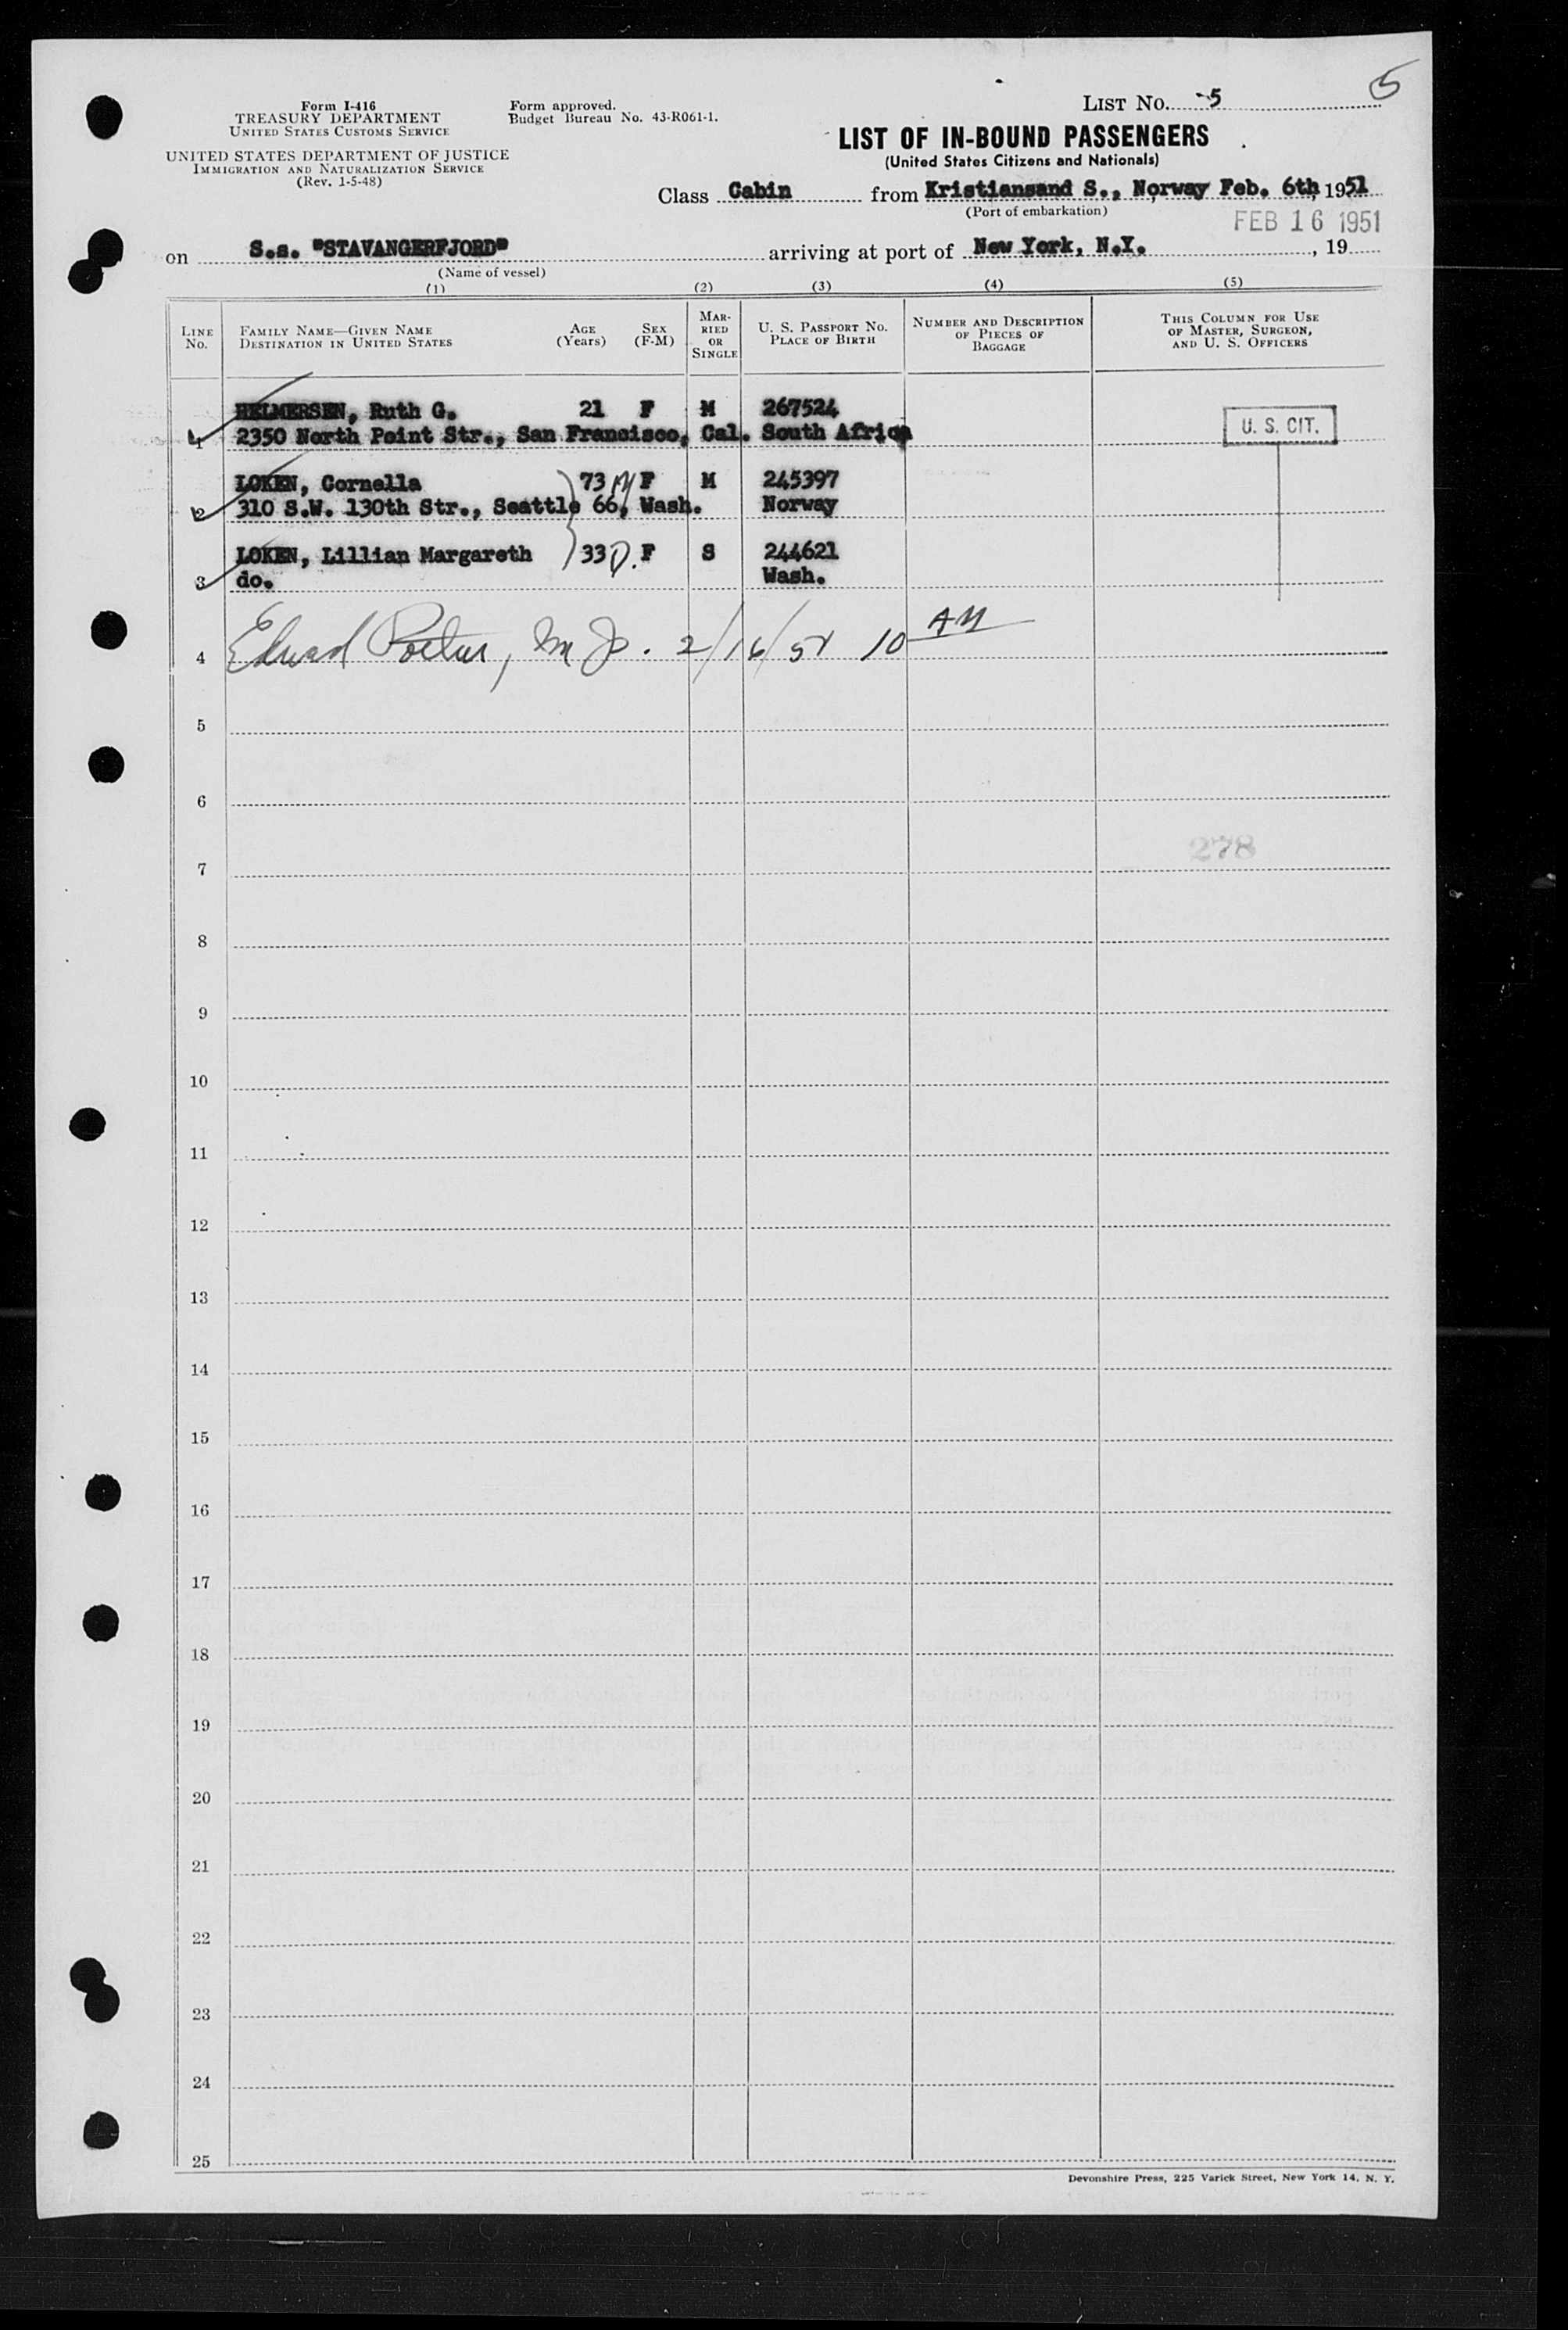 5
Form I-416
TREASURY DEPARTMENT
UNITED STATES CUSTOMS SERVICE
UNITED STATES DEPARTMENT OF JUSTICE
IMMIGRATION AND NATURALIZATION SERVICE
(Rev. 1-5-48)
Form approved.
Budget Bureau No. 43-R061-1.
LIST No. -5
LIST OF IN-BOUND PASSENGERS
(United States Citizens and Nationals)
Class Cabin from Kristiansand S., Norway Feb. 6th, 1951
(Port of embarkation)
FEB 16 1951
on S.s. "STAVANGERFJORD" arriving at port of New York, N.Y. , 19
(Name of vessel)
(1) (2) (3) (4) (5)
LINE No.
FAMILY NAME—GIVEN NAME
DESTINATION IN UNITED STATES
AGE (Years)
SEX (F-M)
MARRIED OR SINGLE
U. S. PASSPORT No.
PLACE OF BIRTH
NUMBER AND DESCRIPTION OF PIECES OF BAGGAGE
THIS COLUMN FOR USE OF MASTER, SURGEON, AND U. S. OFFICERS
HELMERSEN, Ruth G. 21 F M 267524
1 2350 North Point Str., San Francisco, Cal. South Africa U. S. CIT.
LOKEN, Cornella 73 M F M 245397
2 310 S.W. 130th Str., Seattle 66, Wash. Norway
LOKEN, Lillian Margareth 33 D. F S 244621
3 do. Wash.
4 2/16/51 10 AM
5
6
7 278
8
9
10
11
12
13
14
15
16
17
18
19
20
21
22
23
24
25
Devonshire Press, 225 Varick Street, New York 14, N. Y.